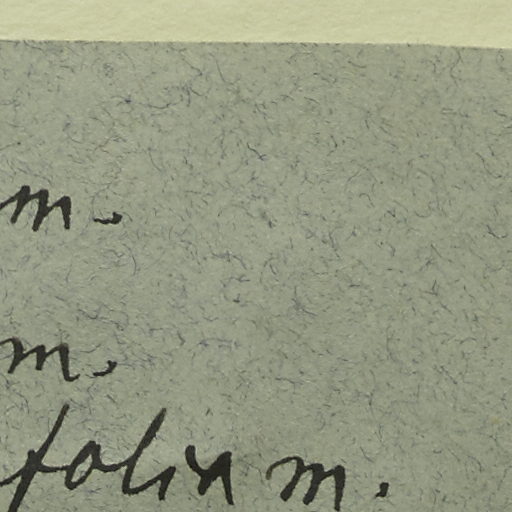 m.
m.
folia m.